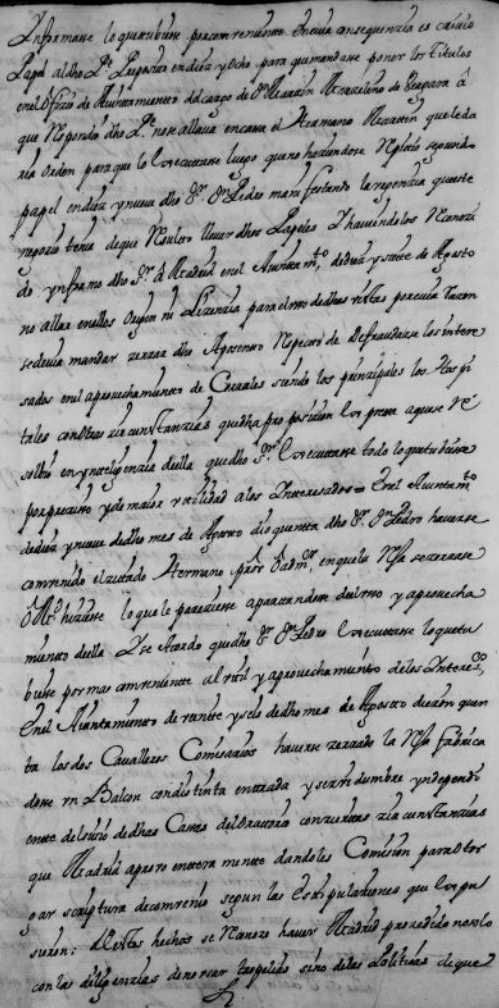 Informasse lo que tubiese por combeniente En cuia consequenzia es
Papel al dho Pe. Preposito en diez y ocho para que mandase poner los Titulos
en el ofizio de Ayuntamiento del cargo de Dn Martin Marzelino de Vergara â
que Respondio dho Pe. no se allava en casa el Hermano Martin que le da
ria orden para que lo executasse luego que no haziendose Replico segundo
papel en diez y nueve dho Sr. Dn Pedro manifestando la urgenzia que este
negozio tenia de que Resulto llevar dhos Papeles Y haviendolos Reconozi
do ynformo dho Sr. â Madrid en el Ayuntamto. de diez y siete de Agosto
no allar en ellos Orijen ni Lizenzia para el uso de dhas vistas por cuia Razon
se devia mandar zerrar dho Aposento Respecto de Defraudarse los intere
sados en el aprovechamiento de Corrales siendo los prinzipales los Hospi
tales con otras zircunstanzias que dha proposizion expresa a que se Re
solbio en ynteligenzia de ella que dho Sr. executasse todo lo que tubiese
por preziso y de maior utilidad a los Interesados = En el Ayuntamto.
de diez y nueve de dho mes de Agosto dio quenta dho Sr. Dn Pedro haverse
combenido el zitado Hermano en que la Rexa se zerrase
ô Md. hiziesse lo que le pareziese apartandose del uso y aprovecha
miento de ella Y se Acordo que dho Sr. Dn Pedro executasse lo que tu
biese por mas combeniente al util y aprovechamiento de los Interesdos.
En el Ayuntamiento de veinte y seis de dho mes de Agosto dieron quen
ta los dos Cavalleros Comisarios haverse zerrado la Rexa fabrica
dose un Balcon con distinta entrada y servidumbre yndependi
ente del sitio de dhas Casas del Oratorio con varias zircunstanzias
que Madrid aprovo enteramente dandoles Comision para otor
gar scriptura de combenio segun las Estipulaziones que expu
sieron: De estos hechos se Reconoze haver Madrid prozedido no solo
con las dilijenzias de no usar tropelias sino de las Politicas de que